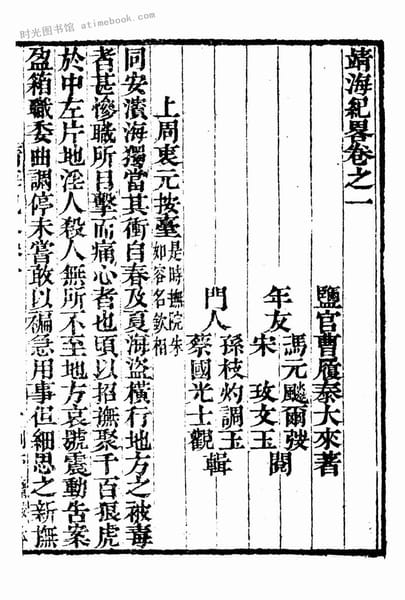 时光图书馆 - atimebook.com
靖海紀畧卷之一
鹽官曹履泰大來著
馮元飇爾弢
年友 閱
宋 玫文玉
孫枝灼調玉
門人 輯
蔡國光士觀
上周衷元按臺 是時撫院朱
如容名欽相
同安濱海獨當其衝自春及夏海盜橫行地方之被毒
者甚慘職所目擊而痛心者也頃以招撫聚千百狼虎
於中左片地淫人殺人無所不至地方哀號震動告案
盈箱職委曲調停未嘗敢以褊急用事但細思之新撫